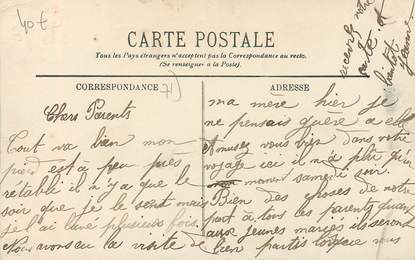 40 €
CARTE POSTALE
Tous les Pays étrangers n'acceptent pas la Correspondance au recto.
(Se renseigner à la Poste).
CORRESPONDANCE
Chers Parents
Tout va bien mon
pied est à peu près
rétabli il n'y a que le
soir que je le sent mais
je l'ai lavé plusieurs fois.
Nous avons eu la visite de
ADRESSE
ma mère hier je
ne pensais guère a elle
Amusez vous bien dans votre
voyage ici il n'a plu qu'un
moment samedi soir.
Bien des choses de notre
part à tous les parents quand
aux jeunes mariés ils seront
bien partis lorsque vous
recevrez notre
carte